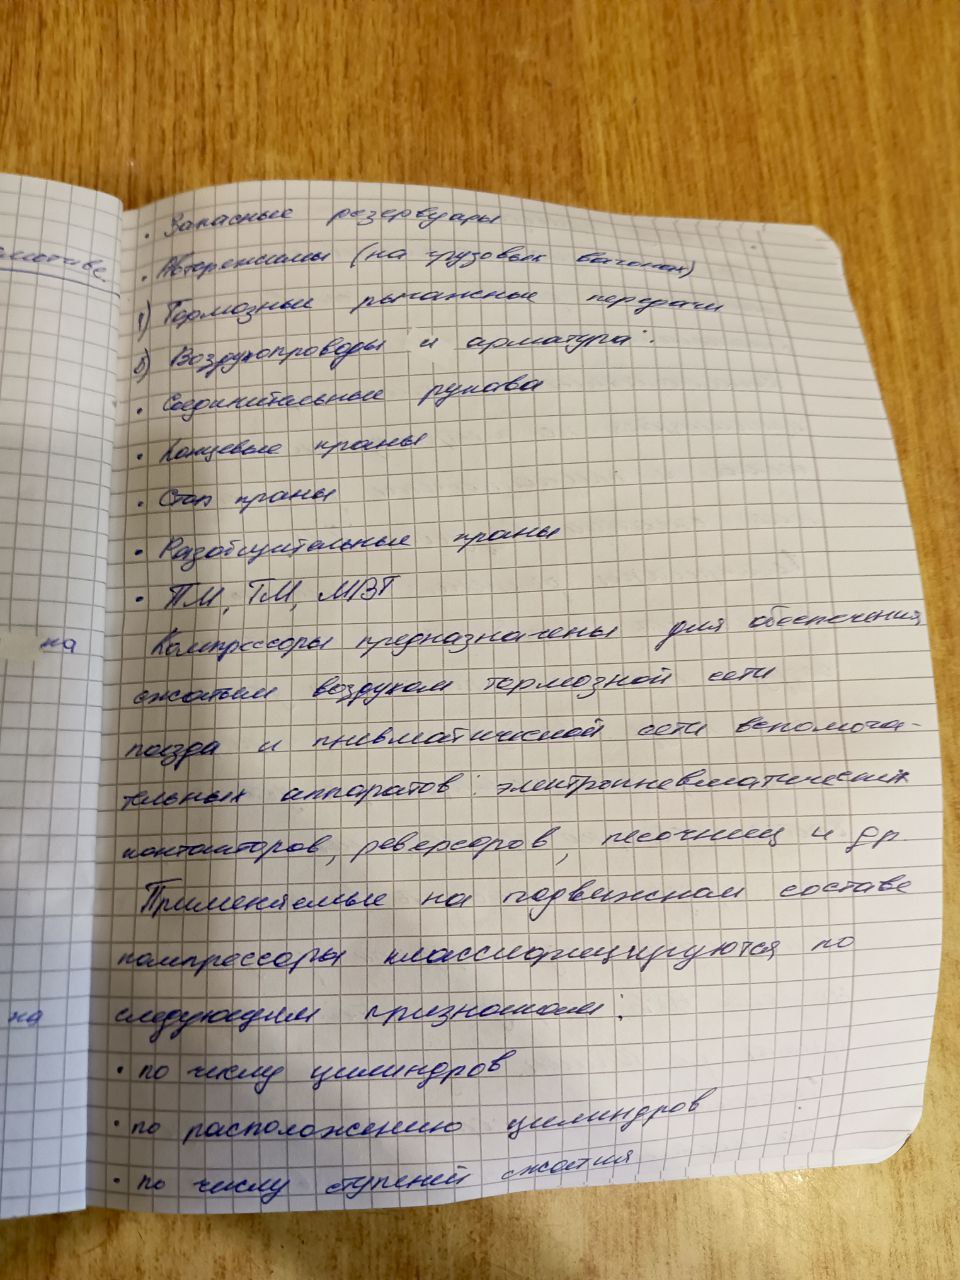 · Запасные резервуары
· Авторежимы (на грузовых вагонах)
1) Тормозные рычажные передачи
б) Воздухопроводы и арматура:
· Соединительные рукава
· Концевые краны
· Стоп краны
· Разобщительные краны
· ПМ, ТМ, МВТ
Компрессоры предназначены для обеспечения
сжатым воздухом тормозной сети
поезда и пневматической сети вспомога-
тельных аппаратов: электропневматических
контакторов, реверсоров, песочниц и др.
Применяемые на подвижном составе
компрессоры классифицируются по
следующим признакам:
· по числу цилиндров
· по расположению цилиндров
· по числу ступеней сжатия
на
на